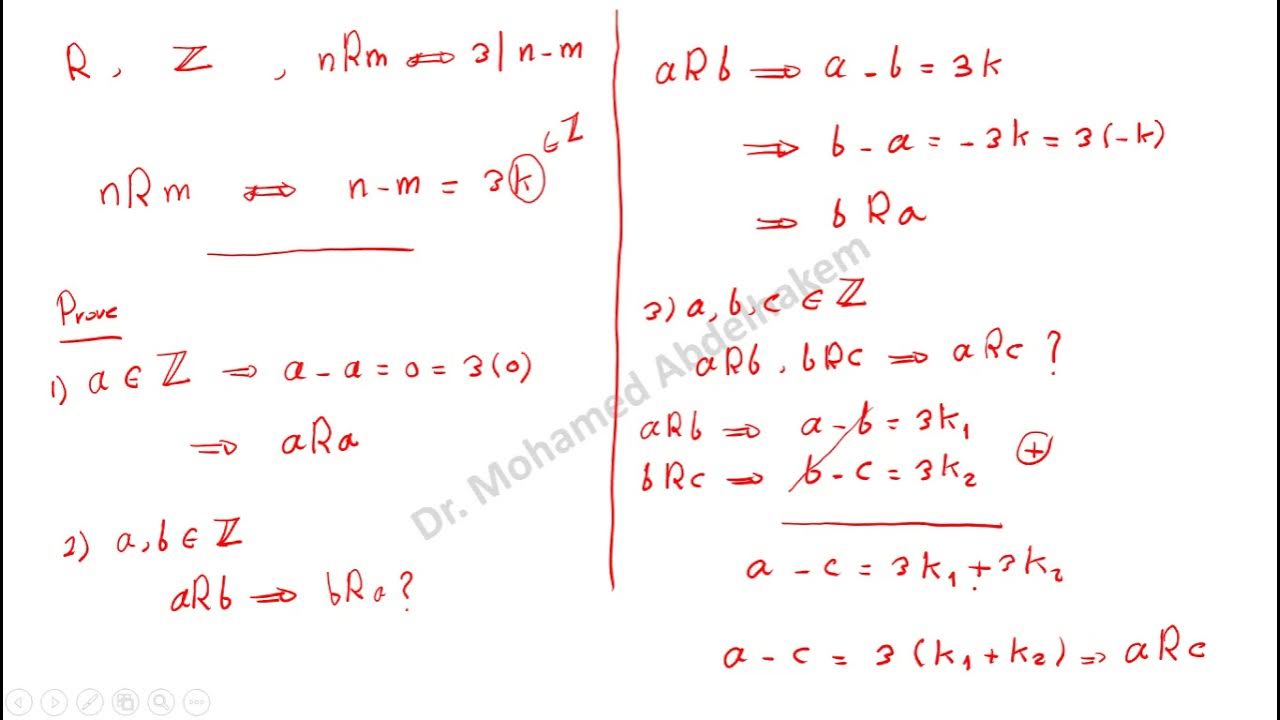 R , ℤ , nRm ⟺ 3|n-m
nRm ⟺ n-m = 3k ∈ ℤ
Prove
1) a ∈ ℤ ⟹ a - a = 0 = 3(0)
⟹ aRa
2) a,b ∈ ℤ
aRb ⟹ bRa?
aRb ⟹ a - b = 3k
⟹ b - a = -3k = 3(-k)
⟹ bRa
3) a,b,c ∈ ℤ
aRb , bRc ⟹ aRc ?
aRb ⟹ a - b = 3k₁
bRc ⟹ b - c = 3k₂
+
a - c = 3k₁ + 3k₂
a - c = 3(k₁ + k₂) ⟹ aRc
Dr. Mohamed Abdelhakem